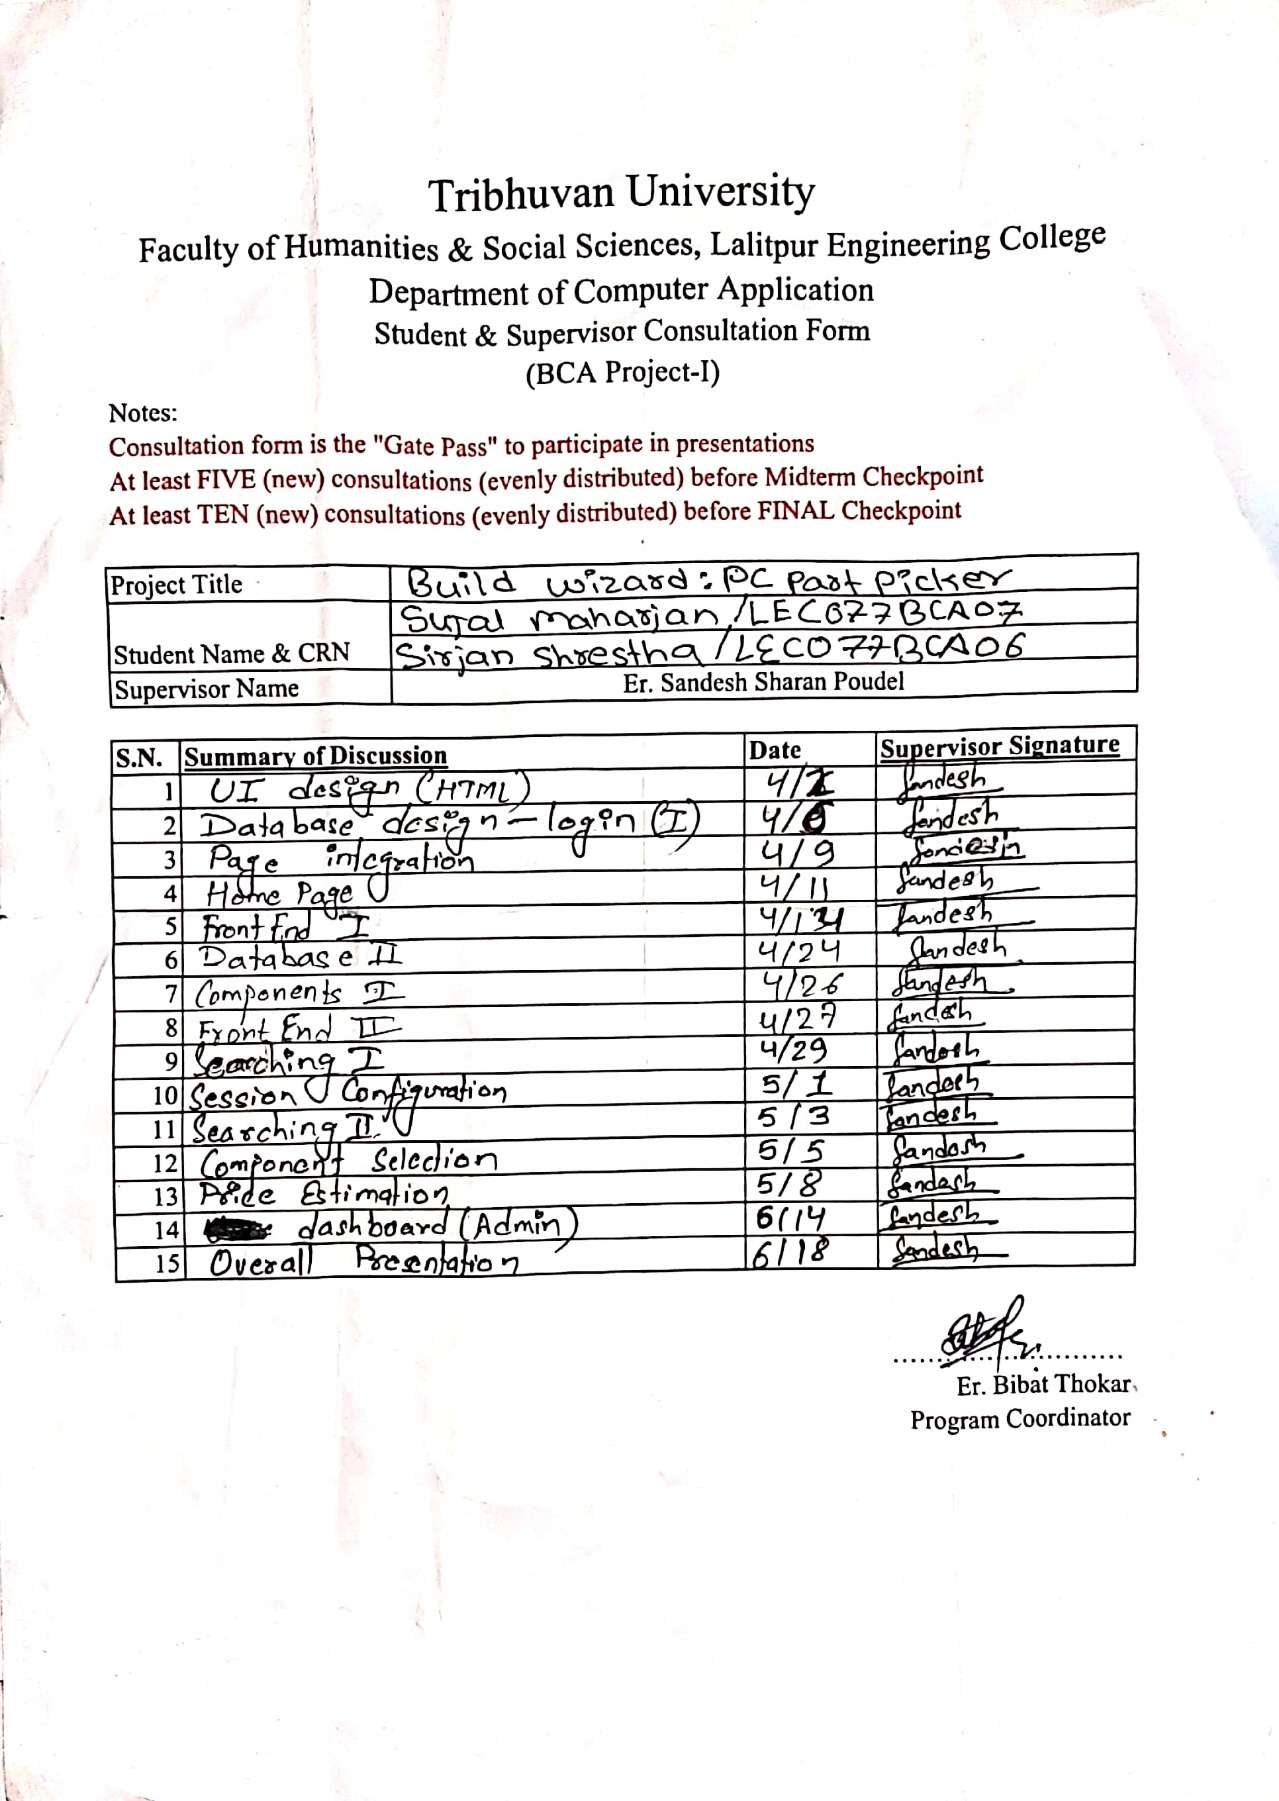 Tribhuvan University
Faculty of Humanities & Social Sciences, Lalitpur Engineering College
Department of Computer Application
Student & Supervisor Consultation Form
(BCA Project-I)
Notes:
Consultation form is the "Gate Pass" to participate in presentations
At least FIVE (new) consultations (evenly distributed) before Midterm Checkpoint
At least TEN (new) consultations (evenly distributed) before FINAL Checkpoint
Project Title Build wizard: PC Part Picker
Sujal maharjan /LEC077BCA07
Student Name & CRN Sirjan Shrestha /LEC077BCA06
Supervisor Name Er. Sandesh Sharan Poudel
S.N. Summary of Discussion Date Supervisor Signature
1 UI design (HTML) Sandesh
2 Database design - login (I) Sandesh
3 Page integration 4/9 Sandesh
4 Home Page 4/11 Sandesh
5 Front End I Sandesh
6 Database II 4/24 Sandesh
7 Components I 4/26 Sandesh
8 Front End II 4/27 Sandesh
9 Searching I 4/29 Sandesh
10 Session Configuration 5/1 Sandesh
11 Searching II 5/3 Sandesh
12 Component Selection 5/5 Sandesh
13 Price Estimation 5/8 Sandesh
14 dashboard (Admin) 6/14 Sandesh
15 Overall Presentation 6/18 Sandesh
Er. Bibat Thokar
Program Coordinator